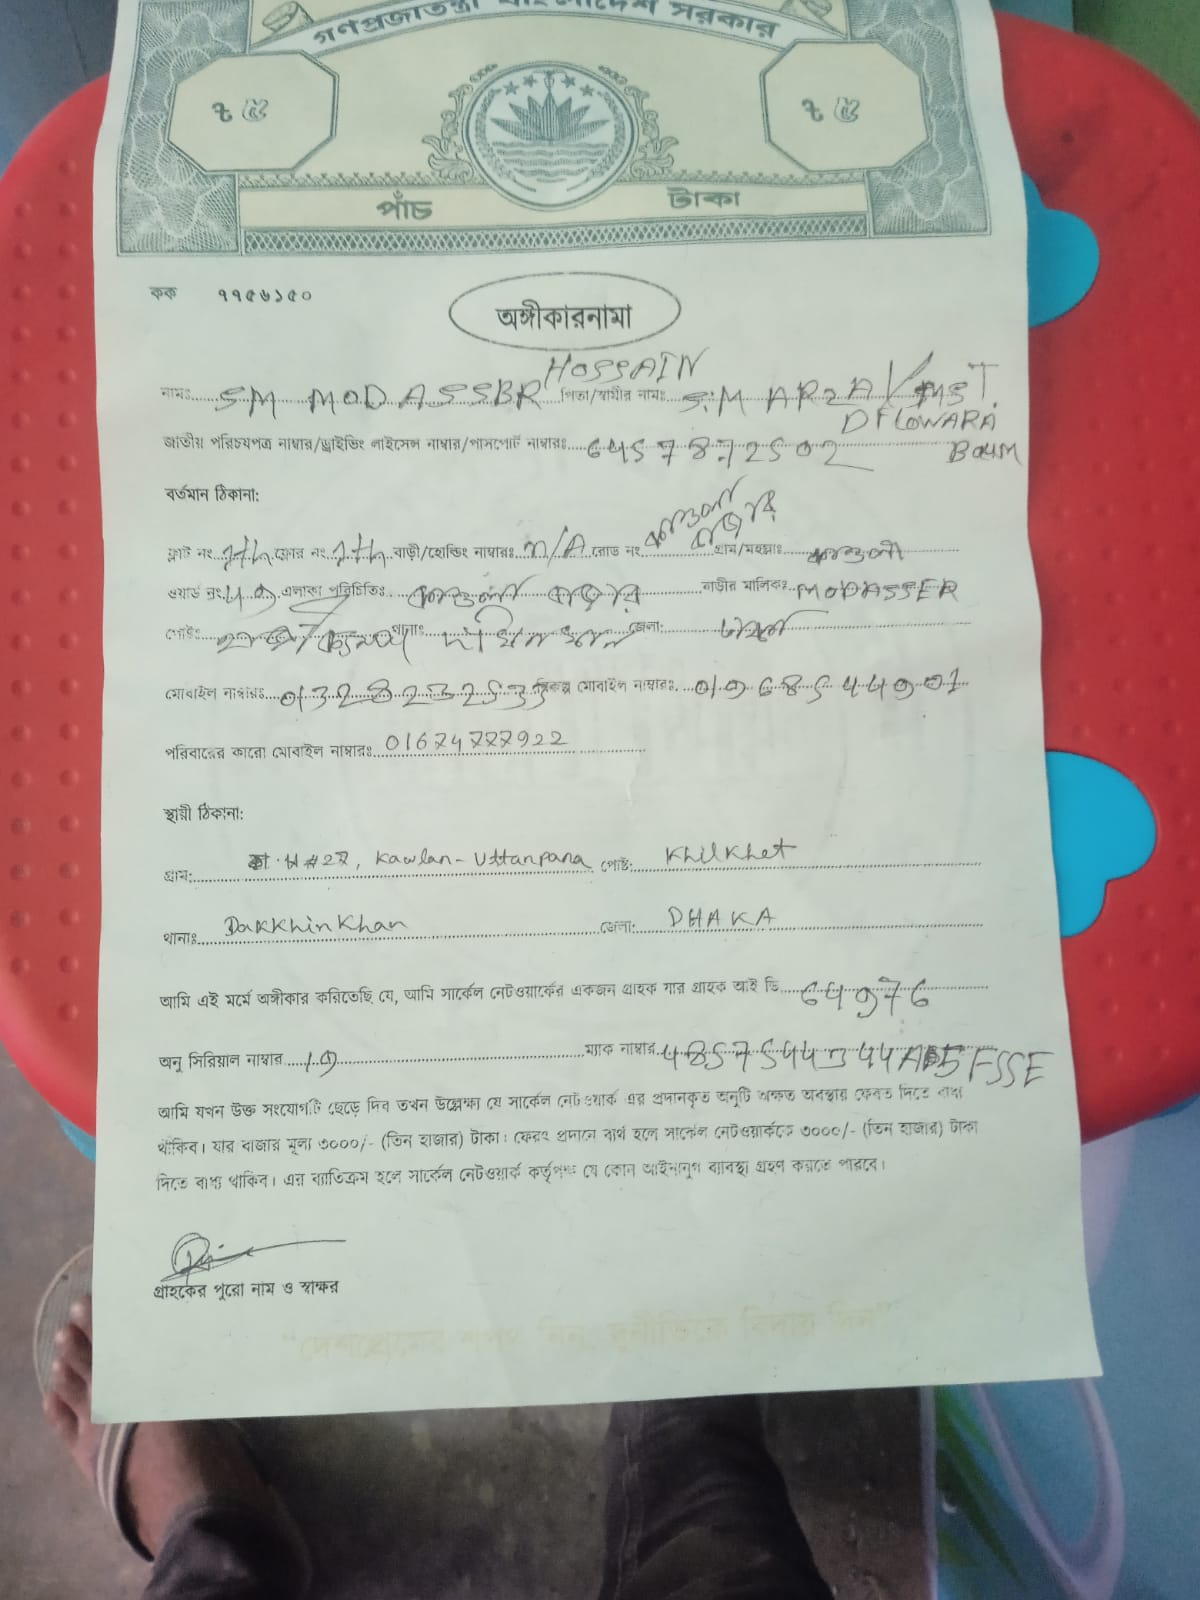 গণপ্রজাতন্ত্রী বাংলাদেশ সরকার
৳ ৫ ৳ ৫
পাঁচ টাকা
কক ৭৭৫৬১৫০
অঙ্গীকারনামা
HOSSAIN
নামঃ SM MODASSBR পিতা/স্বামীর নামঃ S.M ARZA / MST.
DFLOWARA
জাতীয় পরিচয়পত্র নাম্বার/ড্রাইভিং লাইসেন্স নাম্বার/পাসপোর্ট নাম্বারঃ 6457872502
বর্তমান ঠিকানা:
ফ্লাট নং 7th ফ্লোর নং 7th বাড়ী/হোল্ডিং নাম্বারঃ n/A রোড নং কাওলা বাজার গ্রাম/মহল্লাঃ কাওলা
ওয়ার্ড নং 49 এলাকা পরিচিতিঃ কাওলা বাজার বাড়ীর মালিকঃ MODASSER
পোষ্টঃ থানাঃ দক্ষিনখান জেলা: ঢাকা
মোবাইল নাম্বারঃ বিকল্প মোবাইল নাম্বারঃ 01968544901
পরিবারের কারো মোবাইল নাম্বারঃ 01674777922
স্থায়ী ঠিকানা:
গ্রাম: H#27, Kawlan-Uttanpana পোষ্ট: Khilkhet
থানাঃ Dakkhinkhan জেলা: DHAKA
আমি এই মর্মে অঙ্গীকার করিতেছি যে, আমি সার্কেল নেটওয়ার্কের একজন গ্রাহক যার গ্রাহক আই ডি 64976
অনু সিরিয়াল নাম্বার 19 ম্যাক নাম্বার
আমি যখন উক্ত সংযোগটি ছেড়ে দিব তখন উল্লেক্ষা যে সার্কেল নেটওয়ার্ক এর প্রদানকৃত অনুটি অক্ষত অবস্থায় ফেরত দিতে বাধ্য
থাকিব। যার বাজার মূল্য ৩০০০/- (তিন হাজার) টাকা। ফেরৎ প্রদানে ব্যর্থ হলে সার্কেল নেটওয়ার্ককে ৩০০০/- (তিন হাজার) টাকা
দিতে বাধ্য থাকিব। এর ব্যতিক্রম হলে সার্কেল নেটওয়ার্ক কর্তৃপক্ষ যে কোন আইনানুগ ব্যাবস্থা গ্রহণ করতে পারবে।
গ্রাহকের পুরো নাম ও স্বাক্ষর
"দেশপ্রেমের শপথ নিন, দুর্নীতিকে বিদায় দিন"